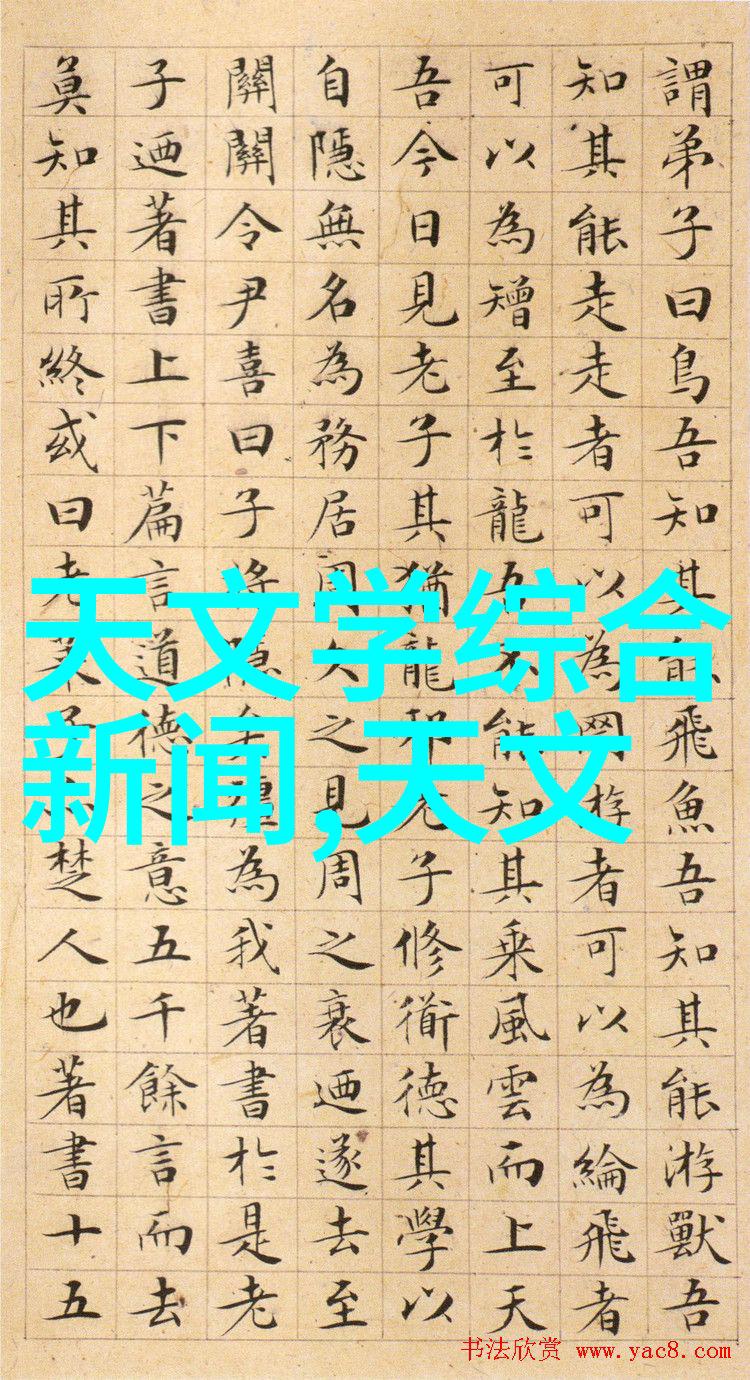 謂弟子曰鳥吾知其能飛魚吾知其能游獸吾
知其能走走者可以為网游者可以為綸飛者
可以為矰至於龍吾不能知其乗風雲而上天
吾今日見老子其猶龍邪老子修衜德其學以
自隱無名為務居周久之見周之衰迺遂去至
關關令尹喜曰子將隱矣彊為我著書於是老
子迺著書上下篇言道德之意五千餘言而去
莫知其所終或曰老萊子亦楚人也著書十五
天文学综合
新闻,天文
书法欣赏 www.yac8.com